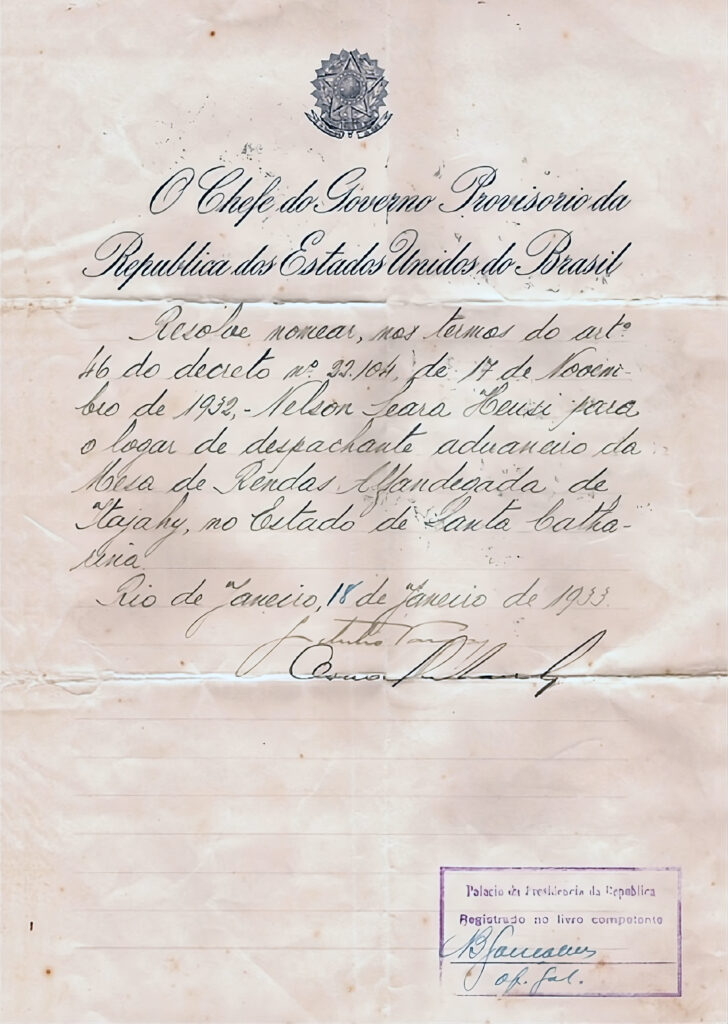 O Chefe do Governo Provisorio da
Republica dos Estados Unidos do Brasil
Resolve nomear, nos termos do artº
46 do decreto nº 22.104, de 17 de Novem-
bro de 1932,- Nelson Seara Heusi para
o logar de despachante aduaneiro da
Mesa de Rendas Alfandegada de
Itajahy, no Estado de Santa Catha-
rina.
Rio de Janeiro, 18 de Janeiro de 1933.
Getulio Vargas
Palacio da Presidencia da Republica
Registrado no livro competente